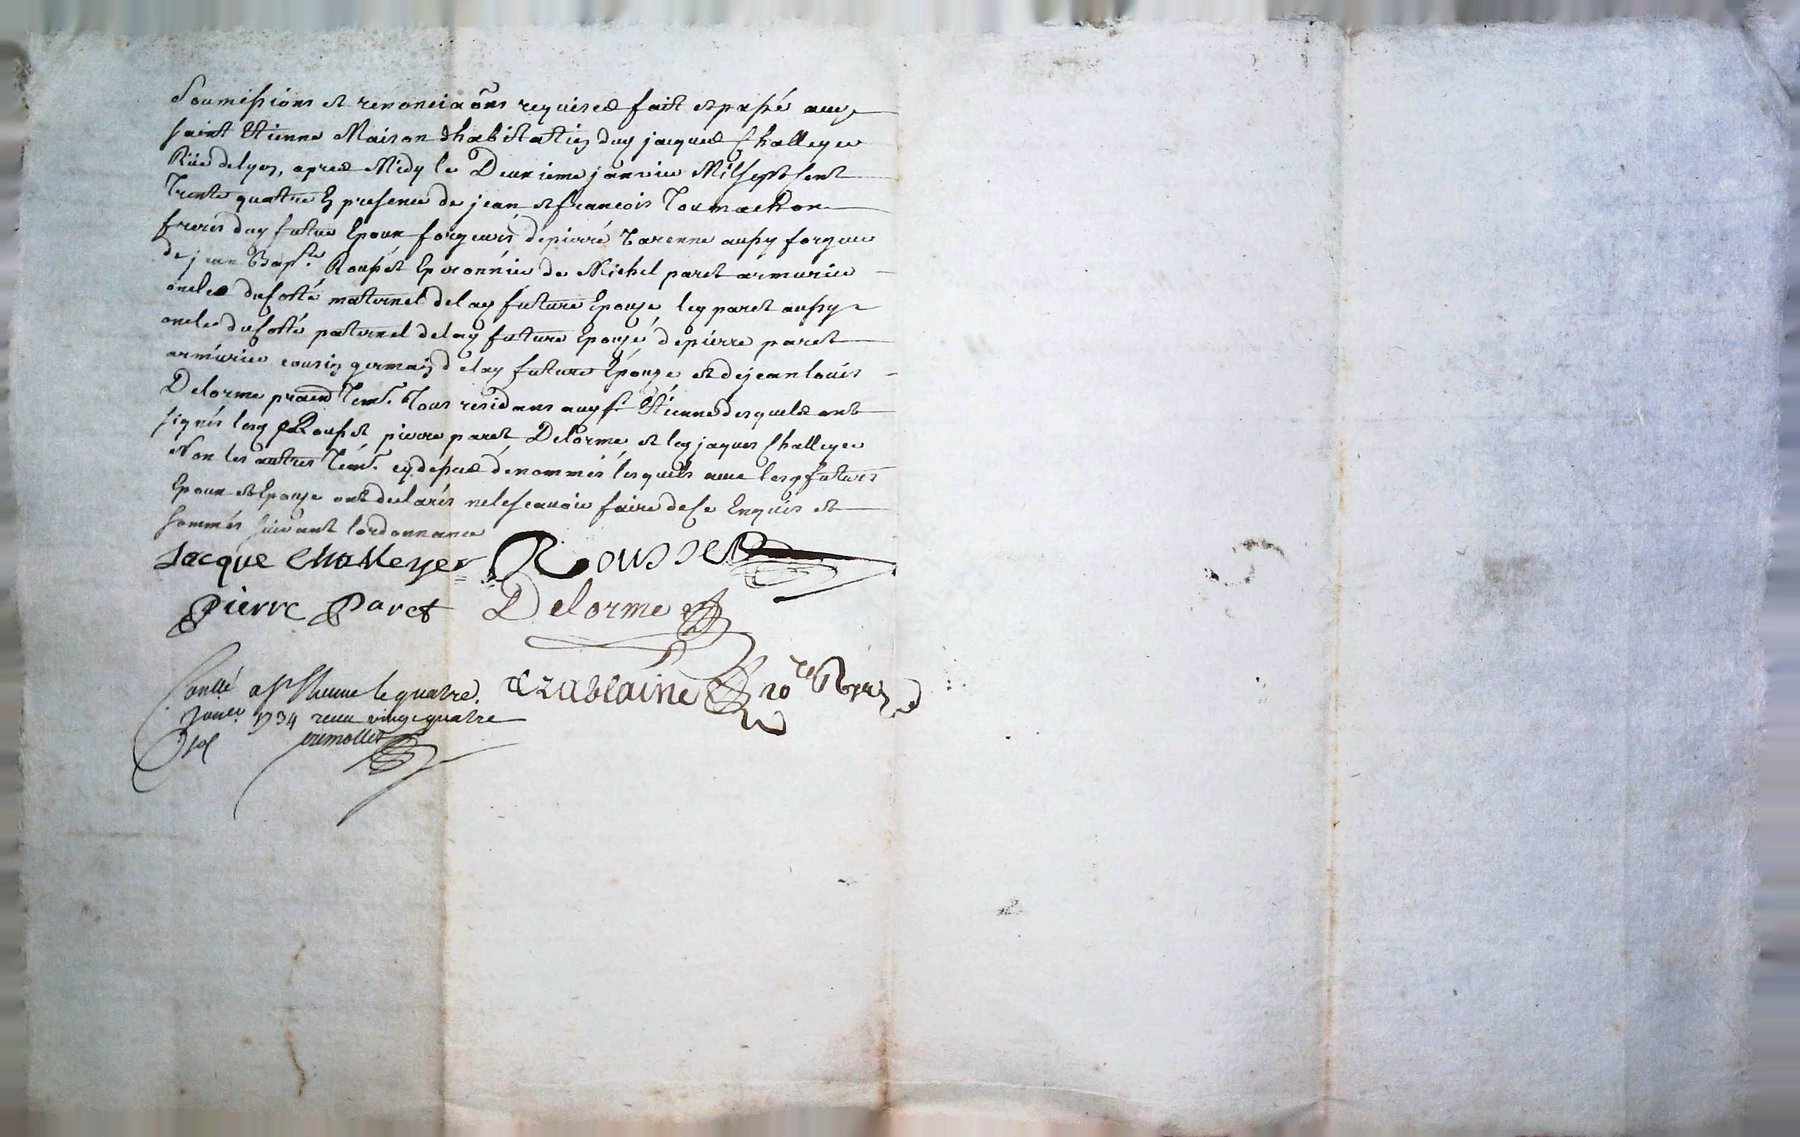 Soumissions et renonciaõns requises fait et passé aud
saint Etienne Maison d'habitation dud jacques Challeyer
Rüe de lyon, apres Midy le Deuxieme janvier Mil sept Cent
Trente quatre En presence de jean et francois Tournachon
freres dud futur Epoux forgeurs de pierre Varenne aussy forgeur
de jean Bapt.e Rousset Eperonnier de Michel paret armurier
oncles du costé maternel de lad future Epouse, led paret aussy
oncle du costé paternel de lad future Epouse de pierre paret
armurier cousin germain de lad future Epouse et de jean louis
Delorme Tem. Tous residans aud St Etienne desquels ont
signés Rousset pierre paret Delorme et led jaques Challeyer
Non les autres Tem. cy dessus dénommés lesquels avec lesd futurs
Epoux et Epouse ont declarés ne le scavoir faire de ce Enquis et
sommés suivant l'ordonnance
Jacque Challeyer Rousset
Pierre Paret Delorme
a St Etienne le quatre
Janer 1734 receu vingt quatre
sol